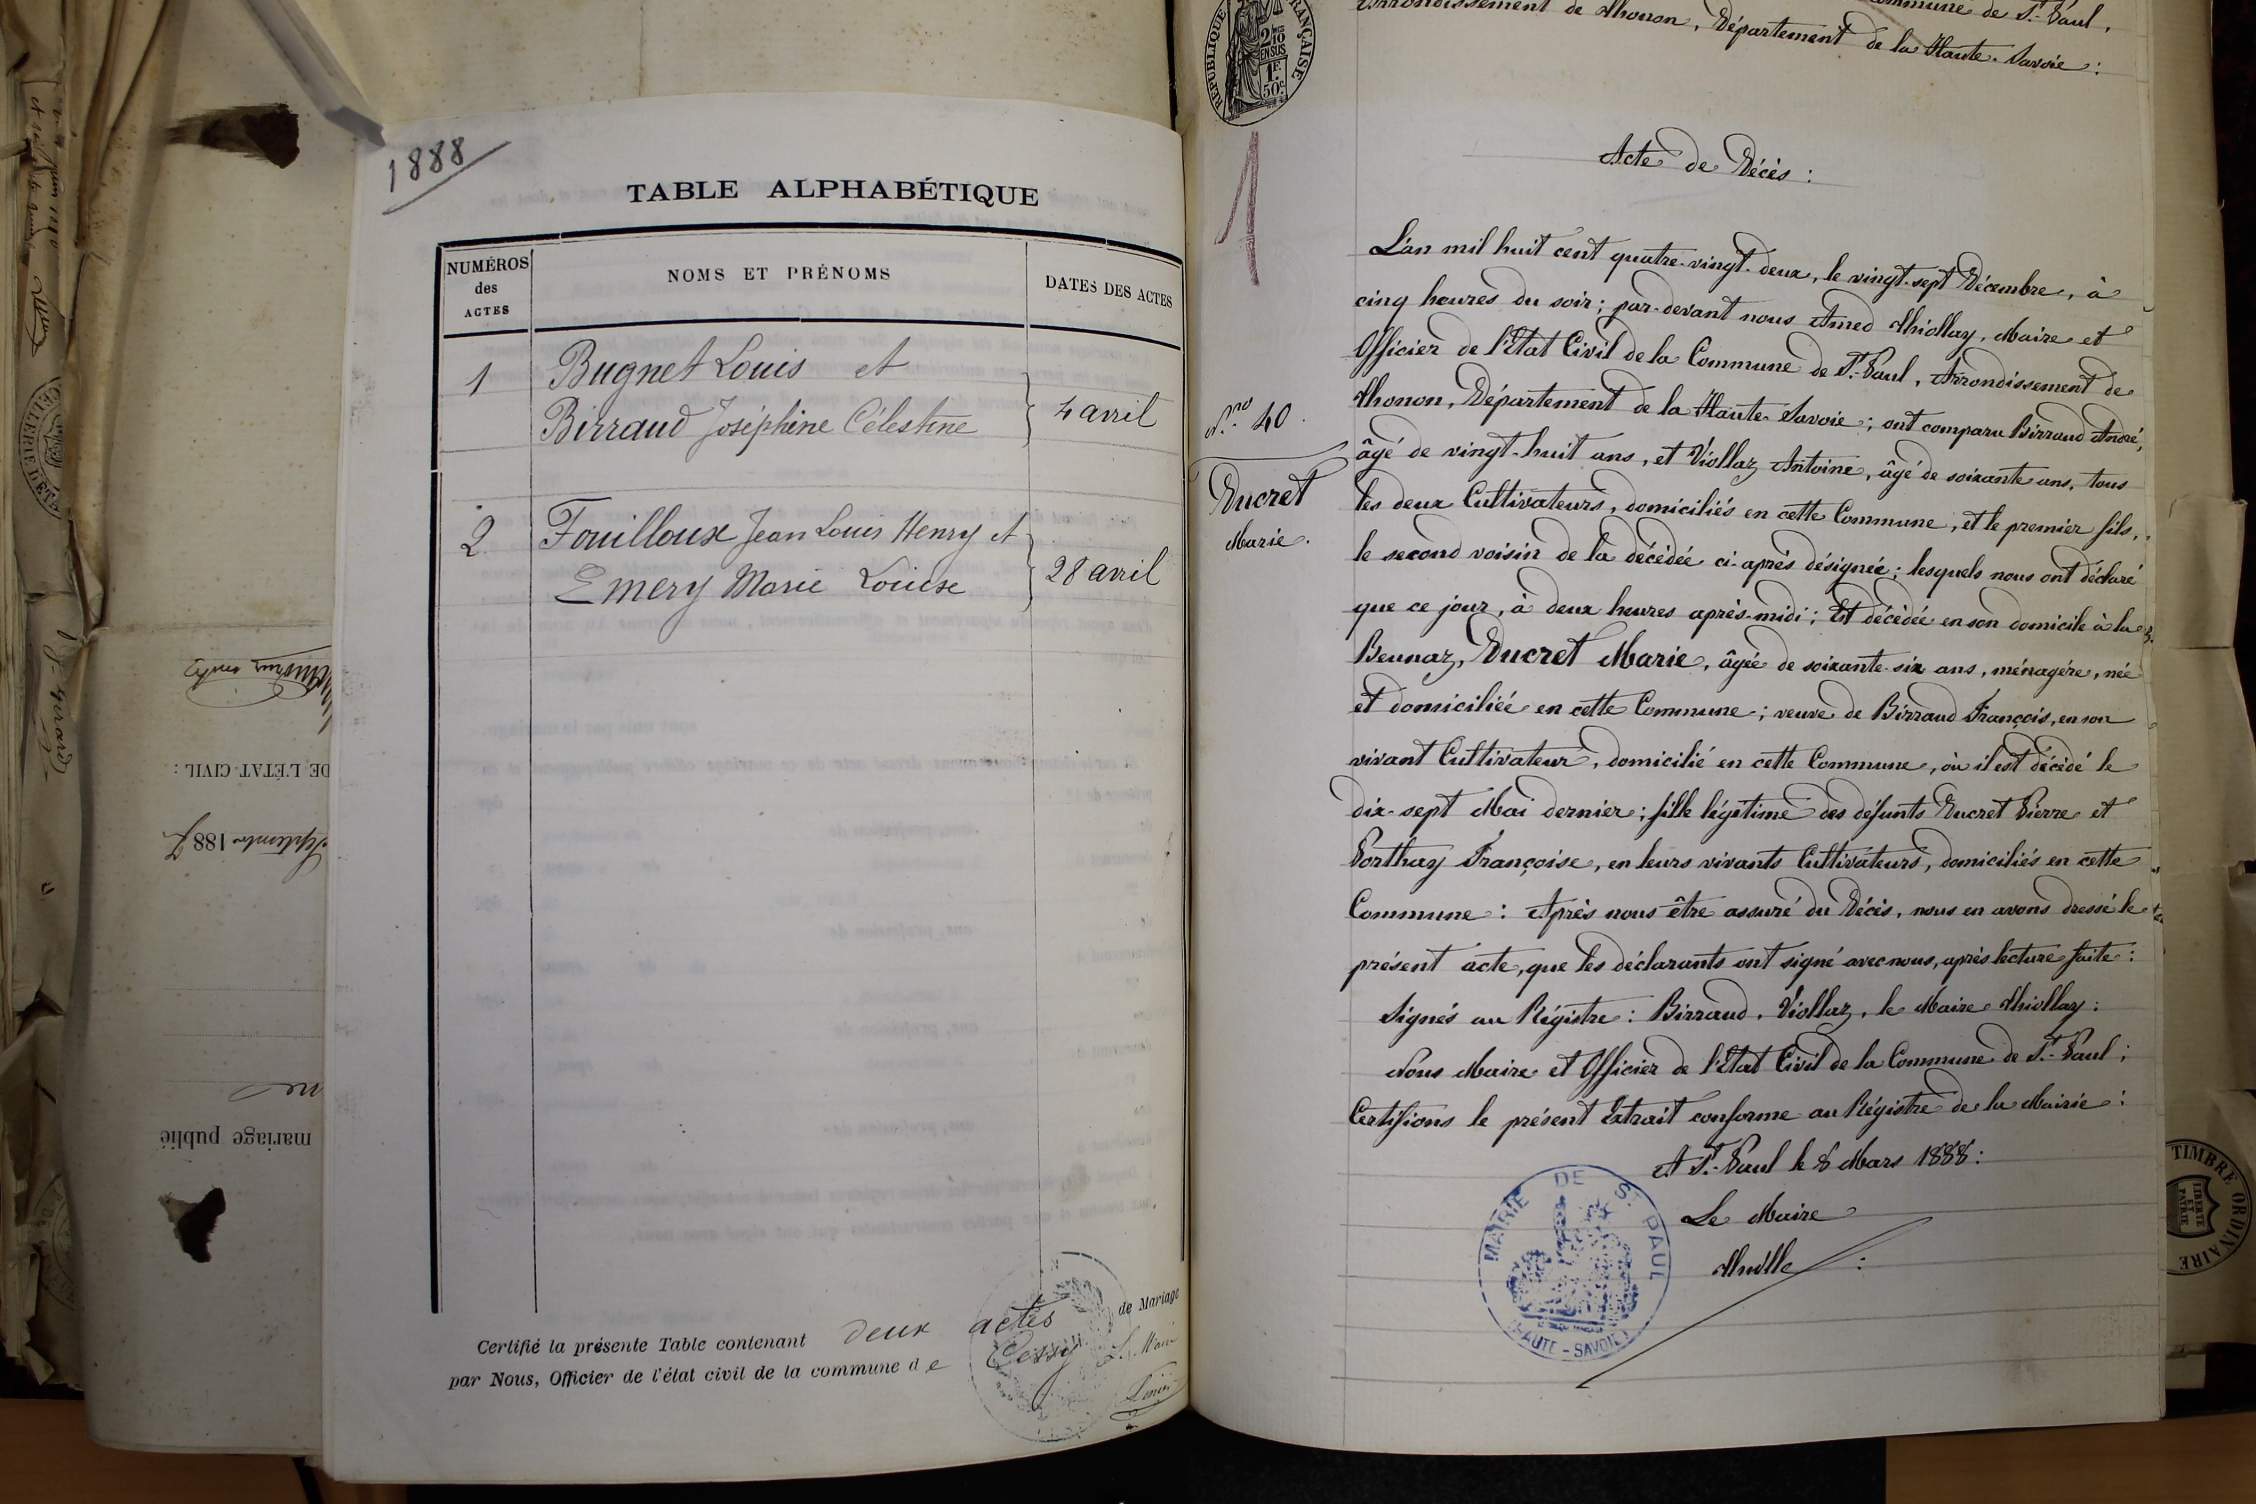 1888
TABLE ALPHABÉTIQUE
NUMÉROS
des
ACTES
NOMS ET PRÉNOMS
DATES DES ACTES
1
Bugnet Louis et
Birraud Joséphine Célestine
4 avril
2
Fouilloux Jean Louis Henry et
Emery Marie Louise
28 avril
Certifié la présente Table contenant deux actes de Mariage
par Nous, Officier de l'état civil de la commune de Cessy Le Maire
DE L'ÉTAT CIVIL :
Septembre 1887
mariage publié
RÉPUBLIQUE FRANÇAISE
2/10
EN SUS
1F
50c
Commune de St-Paul,
Arrondissement de Thonon, Département de la Haute-Savoie :
1
Acte de Décès :
L'an mil huit cent quatre-vingt-deux, le vingt-sept Décembre, à
cinq heures du soir ; par-devant nous Amed Thiollay, Maire et
Officier de l'Etat Civil de la Commune de St-Paul, Arrondissement de
Thonon, Département de la Haute-Savoie ; ont comparu Birraud André,
âgé de vingt-huit ans, et Viollaz Antoine, âgé de soixante ans, tous
les deux Cultivateurs, domiciliés en cette Commune, et le premier fils,
le second voisin de la décédée ci-après désignée ; lesquels nous ont déclaré
que ce jour, à deux heures après-midi ; Est décédée en son domicile à la
Beunaz, Ducret Marie, âgée de soixante-six ans, ménagère, née
et domiciliée en cette Commune ; veuve de Birraud François, en son
vivant Cultivateur, domicilié en cette Commune, où il est décédé le
dix-sept Mai dernier ; fille légitime des défunts Ducret Pierre et
Porthay Françoise, en leurs vivants Cultivateurs, domiciliés en cette
Commune : Après nous être assuré du Décès, nous en avons dressé le
présent acte, que les déclarants ont signé avec nous, après lecture faite :
Signés au Régistre : Birraud, Viollaz, le Maire Thiollay :
Nous Maire et Officier de l'Etat Civil de la Commune de St-Paul ;
Certifions le présent Extrait conforme au Régistre de la Mairie :
A St-Paul le 8 Mars 1888 :
Le Maire
N.ro 40.
Ducret
Marie.
MAIRIE DE ST PAUL
(HAUTE-SAVOIE)
TIMBRE ORDINAIRE
LIBERTÉ
ET
PATRIE